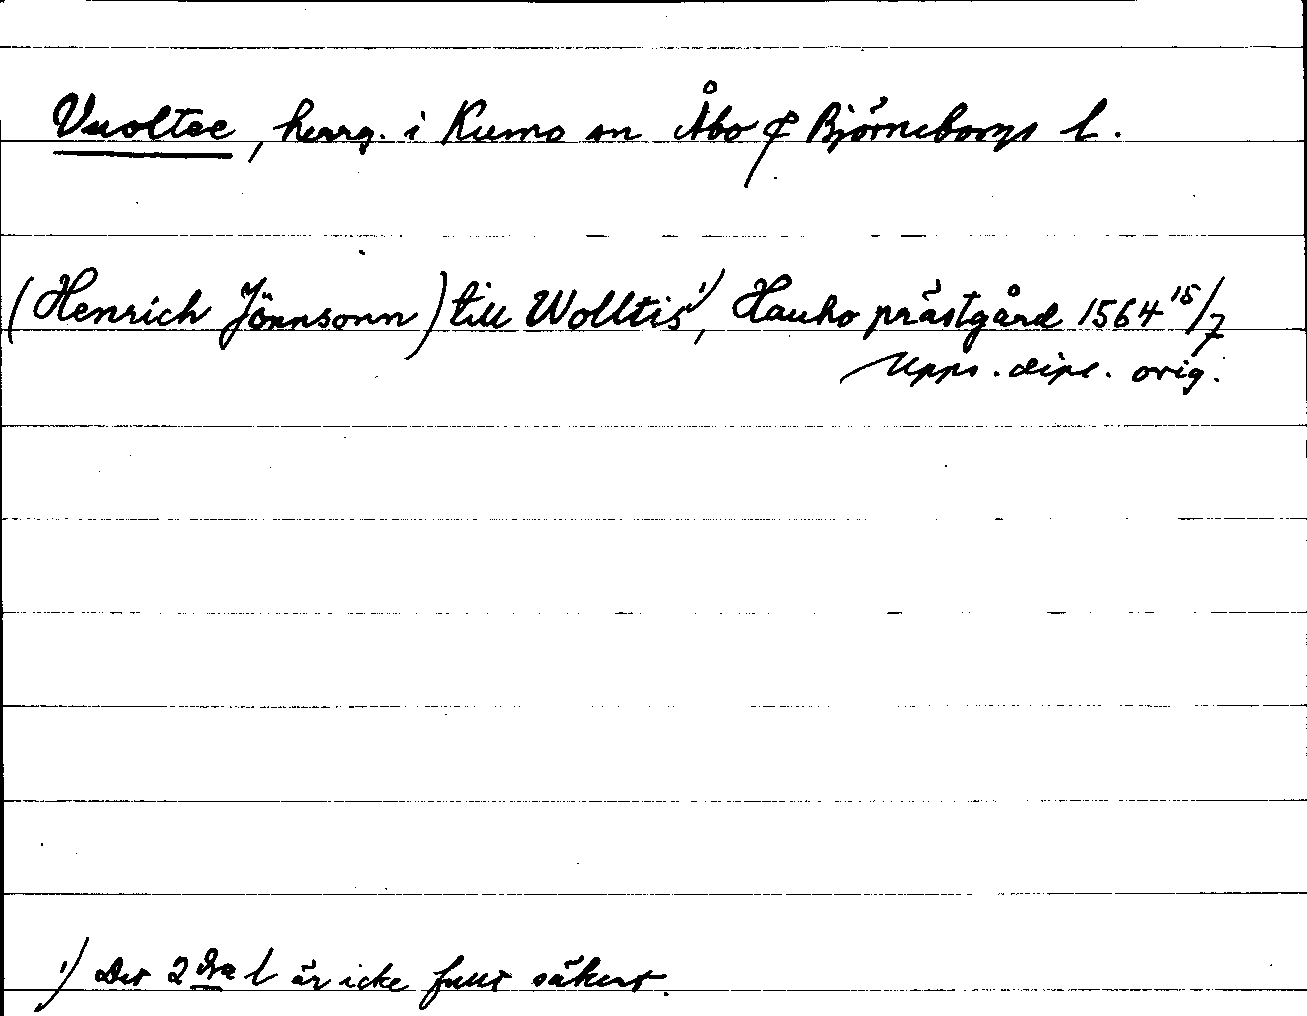 Vuoltee, herrg. i Kumo sn Åbo & Björneborgs l.
(Henrich Jönnsonn) till Wolltis¹⁾, Hauho prästgård 1564 15/7
Upps. dipl. orig.
¹⁾ Det 2dra l är icke fullt säkert.